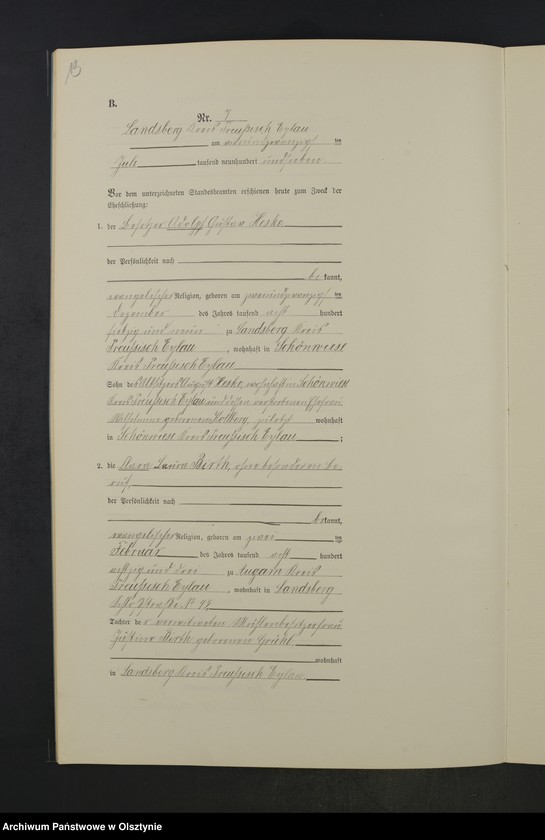 13
B.
Nr. 7
Landsberg Kreis Preußisch Eylau
am ten
Juli tausend neunhundert und sieben
Vor dem unterzeichneten Standesbeamten erschienen heute zum Zweck der
Eheschließung:
1. der Besitzer Adolf Gustav Heske
der Persönlichkeit nach
be kannt,
evangelischer Religion, geboren am zweiundzwanzigsten
Dezember des Jahres tausend acht hundert
siebzig und neun zu Landsberg Kreis
Preußisch Eylau, wohnhaft in Schönwiese
Kreis Preußisch Eylau
Sohn des Altsitzers August Heske, wohnhaft in Schönwiese
Kreis Preußisch Eylau und dessen verstorbenen Ehefrau
Wilhelmine geborenen Kolberg, zuletzt wohnhaft
in Schönwiese Kreis Preußisch Eylau;
2. die Laura Birth, ohne besonderen Be-
ruf,
der Persönlichkeit nach
bekannt,
evangelischer Religion, geboren am zwei ten
Februar des Jahres tausend acht hundert
achtzig und drei zu Augam Kreis
Preußisch Eylau, wohnhaft in Landsberg
Tochter der verwitweten Mühlenbesitzerfrau
Justine Birth geborenen
wohnhaft
in Landsberg Kreis Preußisch Eylau
Archiwum Państwowe w Olsztynie